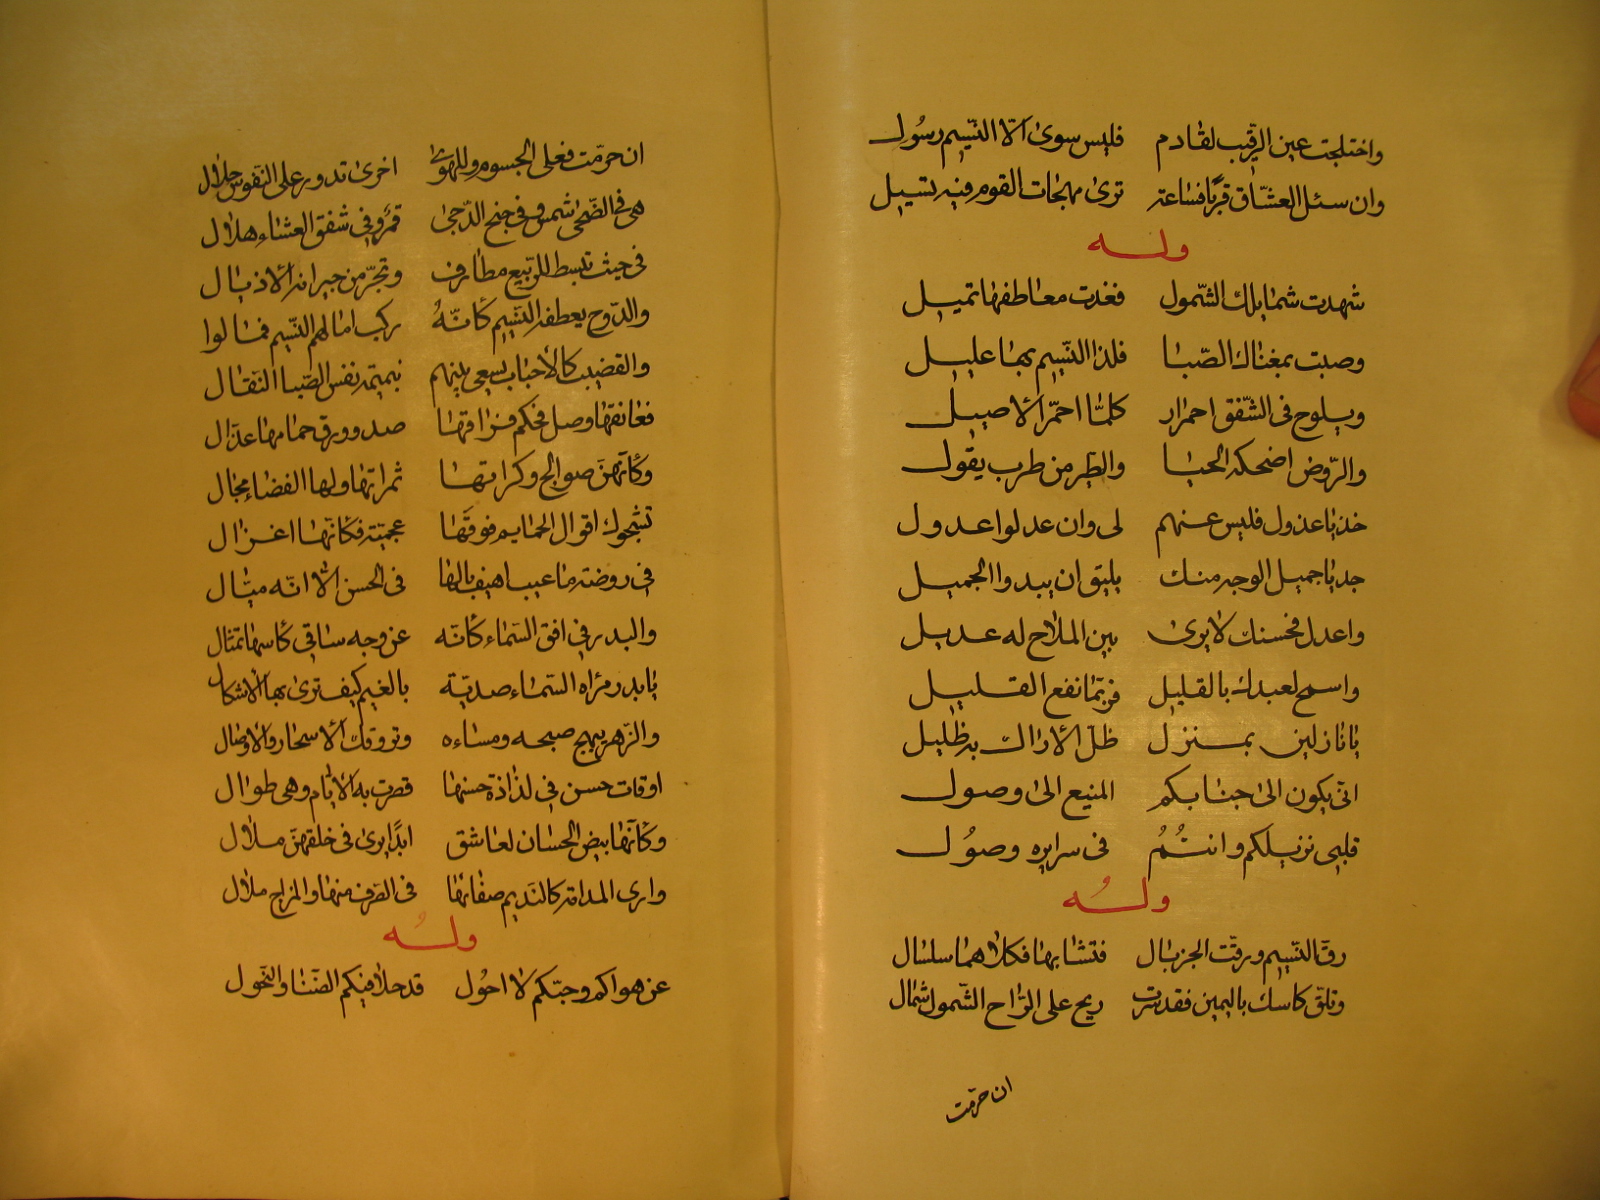 واختلجت عين الرقيب لقادم فليس سوى الا النسيم رسول
وان سئل العشاق قربا فساعة ترى مهجات القوم فيه تسيل
وله
شهدت شمايلك الشمول فغدت معاطفها تميل
وصبت بمغناك الصبا فلذا النسيم بها عليل
ويلوح فى الشفق احمرار كلما احمر الاصيل
والروض اضحكه الحيا والطير من طرب يقول
خذ يا عذول فليس عنهم لى وان عدلوا عدول
جد يا جميل الوجه منك يليق ان يبدوا الجميل
واعدل فحسنك لا يرى بين الملاح له عديل
واسمح لعبدك بالقليل فربما نفع القليل
يا نازلين بمنزل ظل الاراك به ظليل
انى يكون الى جنابكم المنيع الى وصول
قلبى نزيلكم وانتم فى سرايره وصول
وله
رق النسيم ورقت الجزيال فتشابها فكلاهما سلسال
وتلق كاسك باليمين فقد سرت ريح على الراح الشمول شمال
ان حرمت
ان حرمت فعلى الجسوم وللهوى اخرى تدور على النفوس حلال
هى فى الضحى شمس وفى جنح الدجى قمر وفى شفق العشاء هلال
فى حيث تبسط للربيع مطارف وتجر من حبراته الاذيال
والدوح يعطفه النسيم كانه ركب امالهم النسيم فمالوا
والقضيب كالاحباب يسعى بينهم بنميمه نفس الصبا النقال
فعانقها وصل فحكم فراقها صد وورق حمامها عذال
وكانهن صوالج وكراتها ثمراتها ولها الفضاء مجال
تشجوك اقوال الحمايم فوقها عجمية فكانها اغزال
فى روضة ما عيب اهيف بانها فى الحسن الا انه ميال
والبدر فى افق السماء كانه عن وجه ساقى كاسها تمثال
يا بدر مراه السماء صدية بالغيم كيف ترى بها الاشكال
والزهر يبهج صبحه ومساءه وتروقك الاسحار والاوصال
اوقات حسن فى لذاذة حسنها قصرت به الايام وهى طوال
وكانها بيض الحسان لعاشق ابدا يرى فى خلقهن ملال
وارى المدامة كالنديم صفاتها فى الصرف منها والمزاج ملال
وله
عن هواكم وحبكم لا احول قد حلا فيكم الضنا والنحول